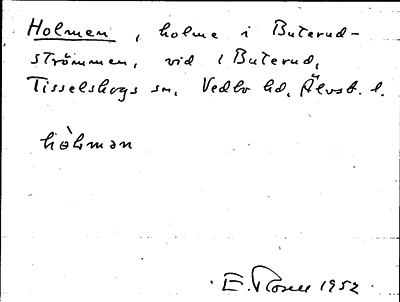 Holmen, holme i Buterud-
strömmen, vid 1 Buterud,
Tisselskogs sn, Vedbo hd, Älvsb. l.
hòlmən
E. Rosell 1952